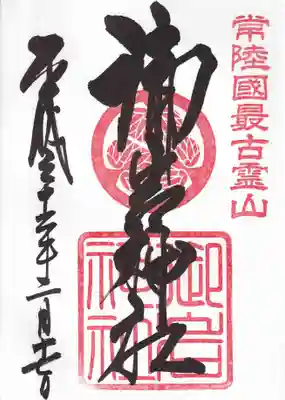 常陸國最古霊山
御岩神社
御岩
神社
平成三十一年二月